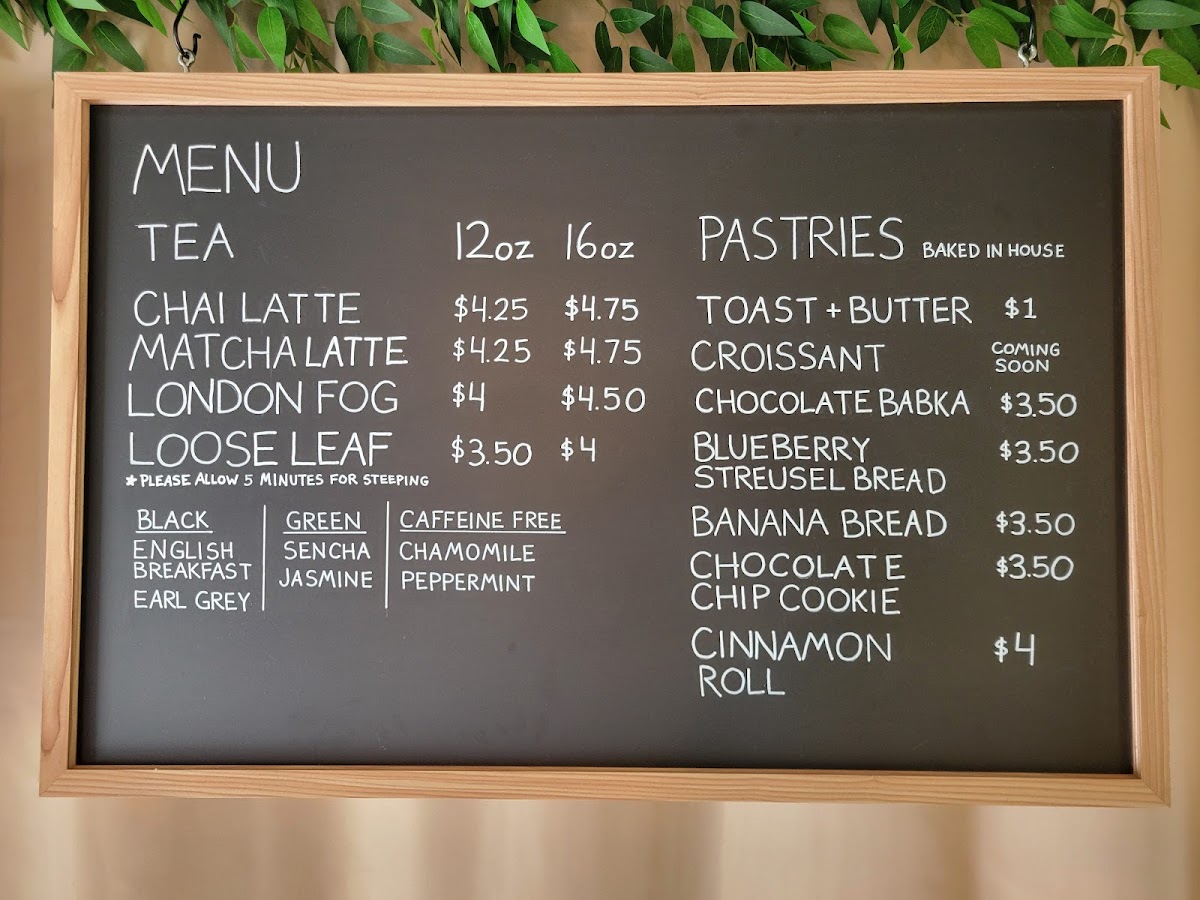 MENU
TEA 12oz 16oz
CHAI LATTE $4.25 $4.75
MATCHA LATTE $4.25 $4.75
LONDON FOG $4 $4.50
LOOSE LEAF $3.50 $4
* PLEASE ALLOW 5 MINUTES FOR STEEPING
BLACK
ENGLISH
BREAKFAST
EARL GREY
GREEN
SENCHA
JASMINE
CAFFEINE FREE
CHAMOMILE
PEPPERMINT
PASTRIES BAKED IN HOUSE
TOAST + BUTTER $1
CROISSANT COMING
SOON
CHOCOLATE BABKA $3.50
BLUEBERRY $3.50
STREUSEL BREAD
BANANA BREAD $3.50
CHOCOLATE $3.50
CHIP COOKIE
CINNAMON $4
ROLL